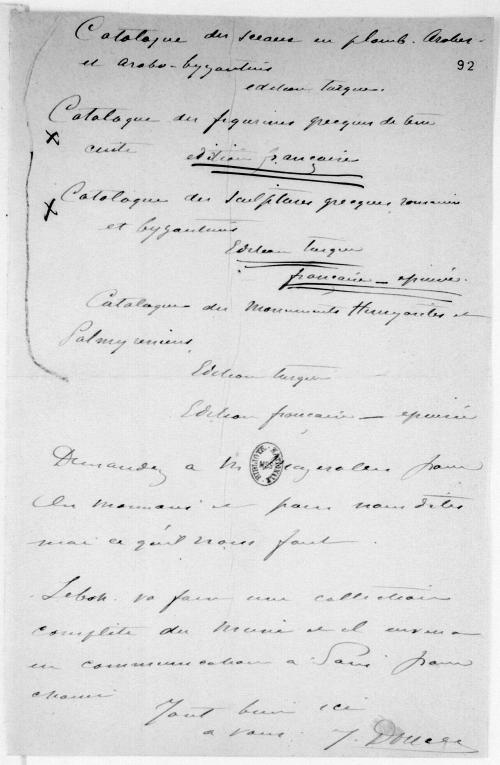 Catalogue des sceaux en plomb. Arabes-
et arabo-byzantins
92
edition turque.
Catalogue des figurines grecques de terre
cuite edition française
Catalogue des sculptures grecques romaines
et byzantins
Edition turque
française — épuisée.
Catalogue des monuments Himyarites et
Palmyréniens
Edition turque
Edition française — épuisée
Demandez a M pour
les et pour nous dites
moi ce qu'il vous faut.
Lebok va faire une collection
complète du Musée et il
en communication a Paris pour
choisir
Tout bien ici
a vous. J.